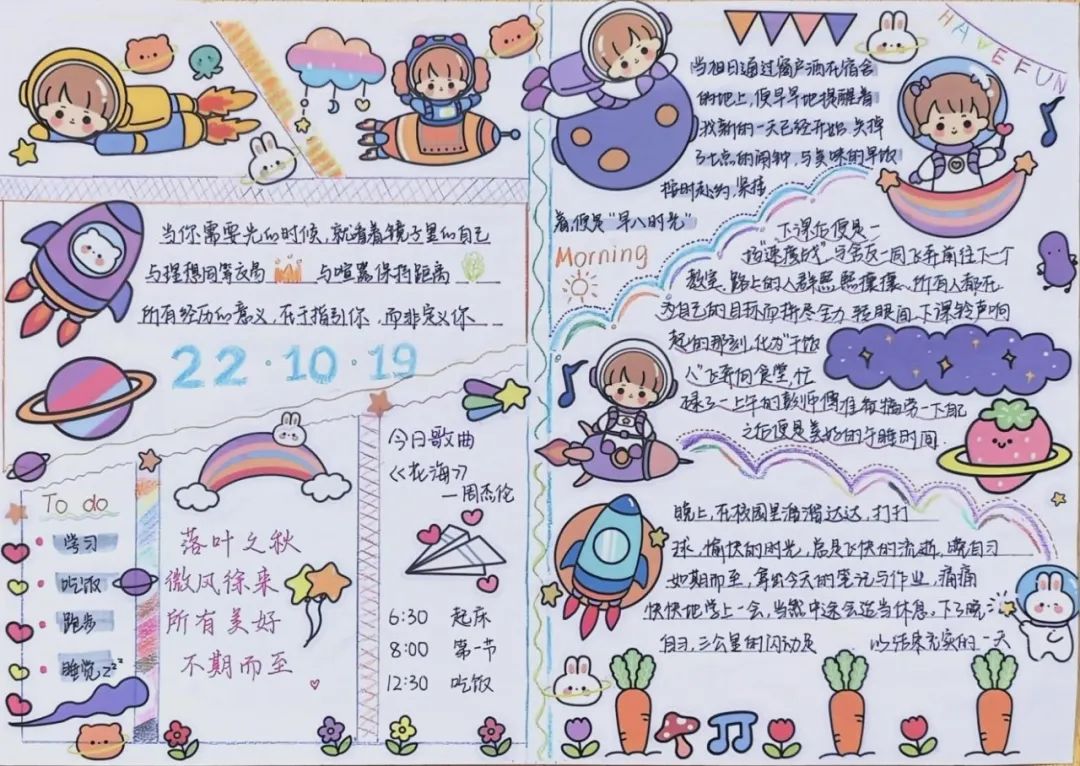 当你需要光的时候，就看看镜子里的自己
与理想同等交易 与喧嚣保持距离
所有经历的意义，在于指引你，而非定义你
22·10·19
To do
学习
吃饭
跑步
睡觉zzz
落叶之秋
微风徐来
所有美好
不期而至
今日歌曲
《花海》
—周杰伦
6:30 起床
8:00 第一节
12:30 吃饭
HAVE FUN
当旭日通过窗户洒在宿舍
的地上，便早早地提醒着
我新的一天已经开始，关掉
了七点的闹钟，与美味的早饭
按时赴约，紧接
着，便是“早八时光”
Morning
下课后便是一
场“速度战”，与舍友一同飞奔前往下一个
教室，路上的人群熙熙攘攘，所有人都在
为自己的目标而拼尽全力，转眼间，下课铃声响
起的那刻，化为“干饭
人”飞奔向食堂，忙
碌了一上午的教师傅准备犒劳一下自己
之后便是美好的午睡时间.
晚上，在校园里溜溜达达，打打
球，愉快的时光，总是飞快的流逝，晚自习
如期而至，拿出今天的笔记与作业，痛痛
快快地学上一会，当然中途会适当休息，下了晚
自习，三公里的闪动足 以结束充实的一天